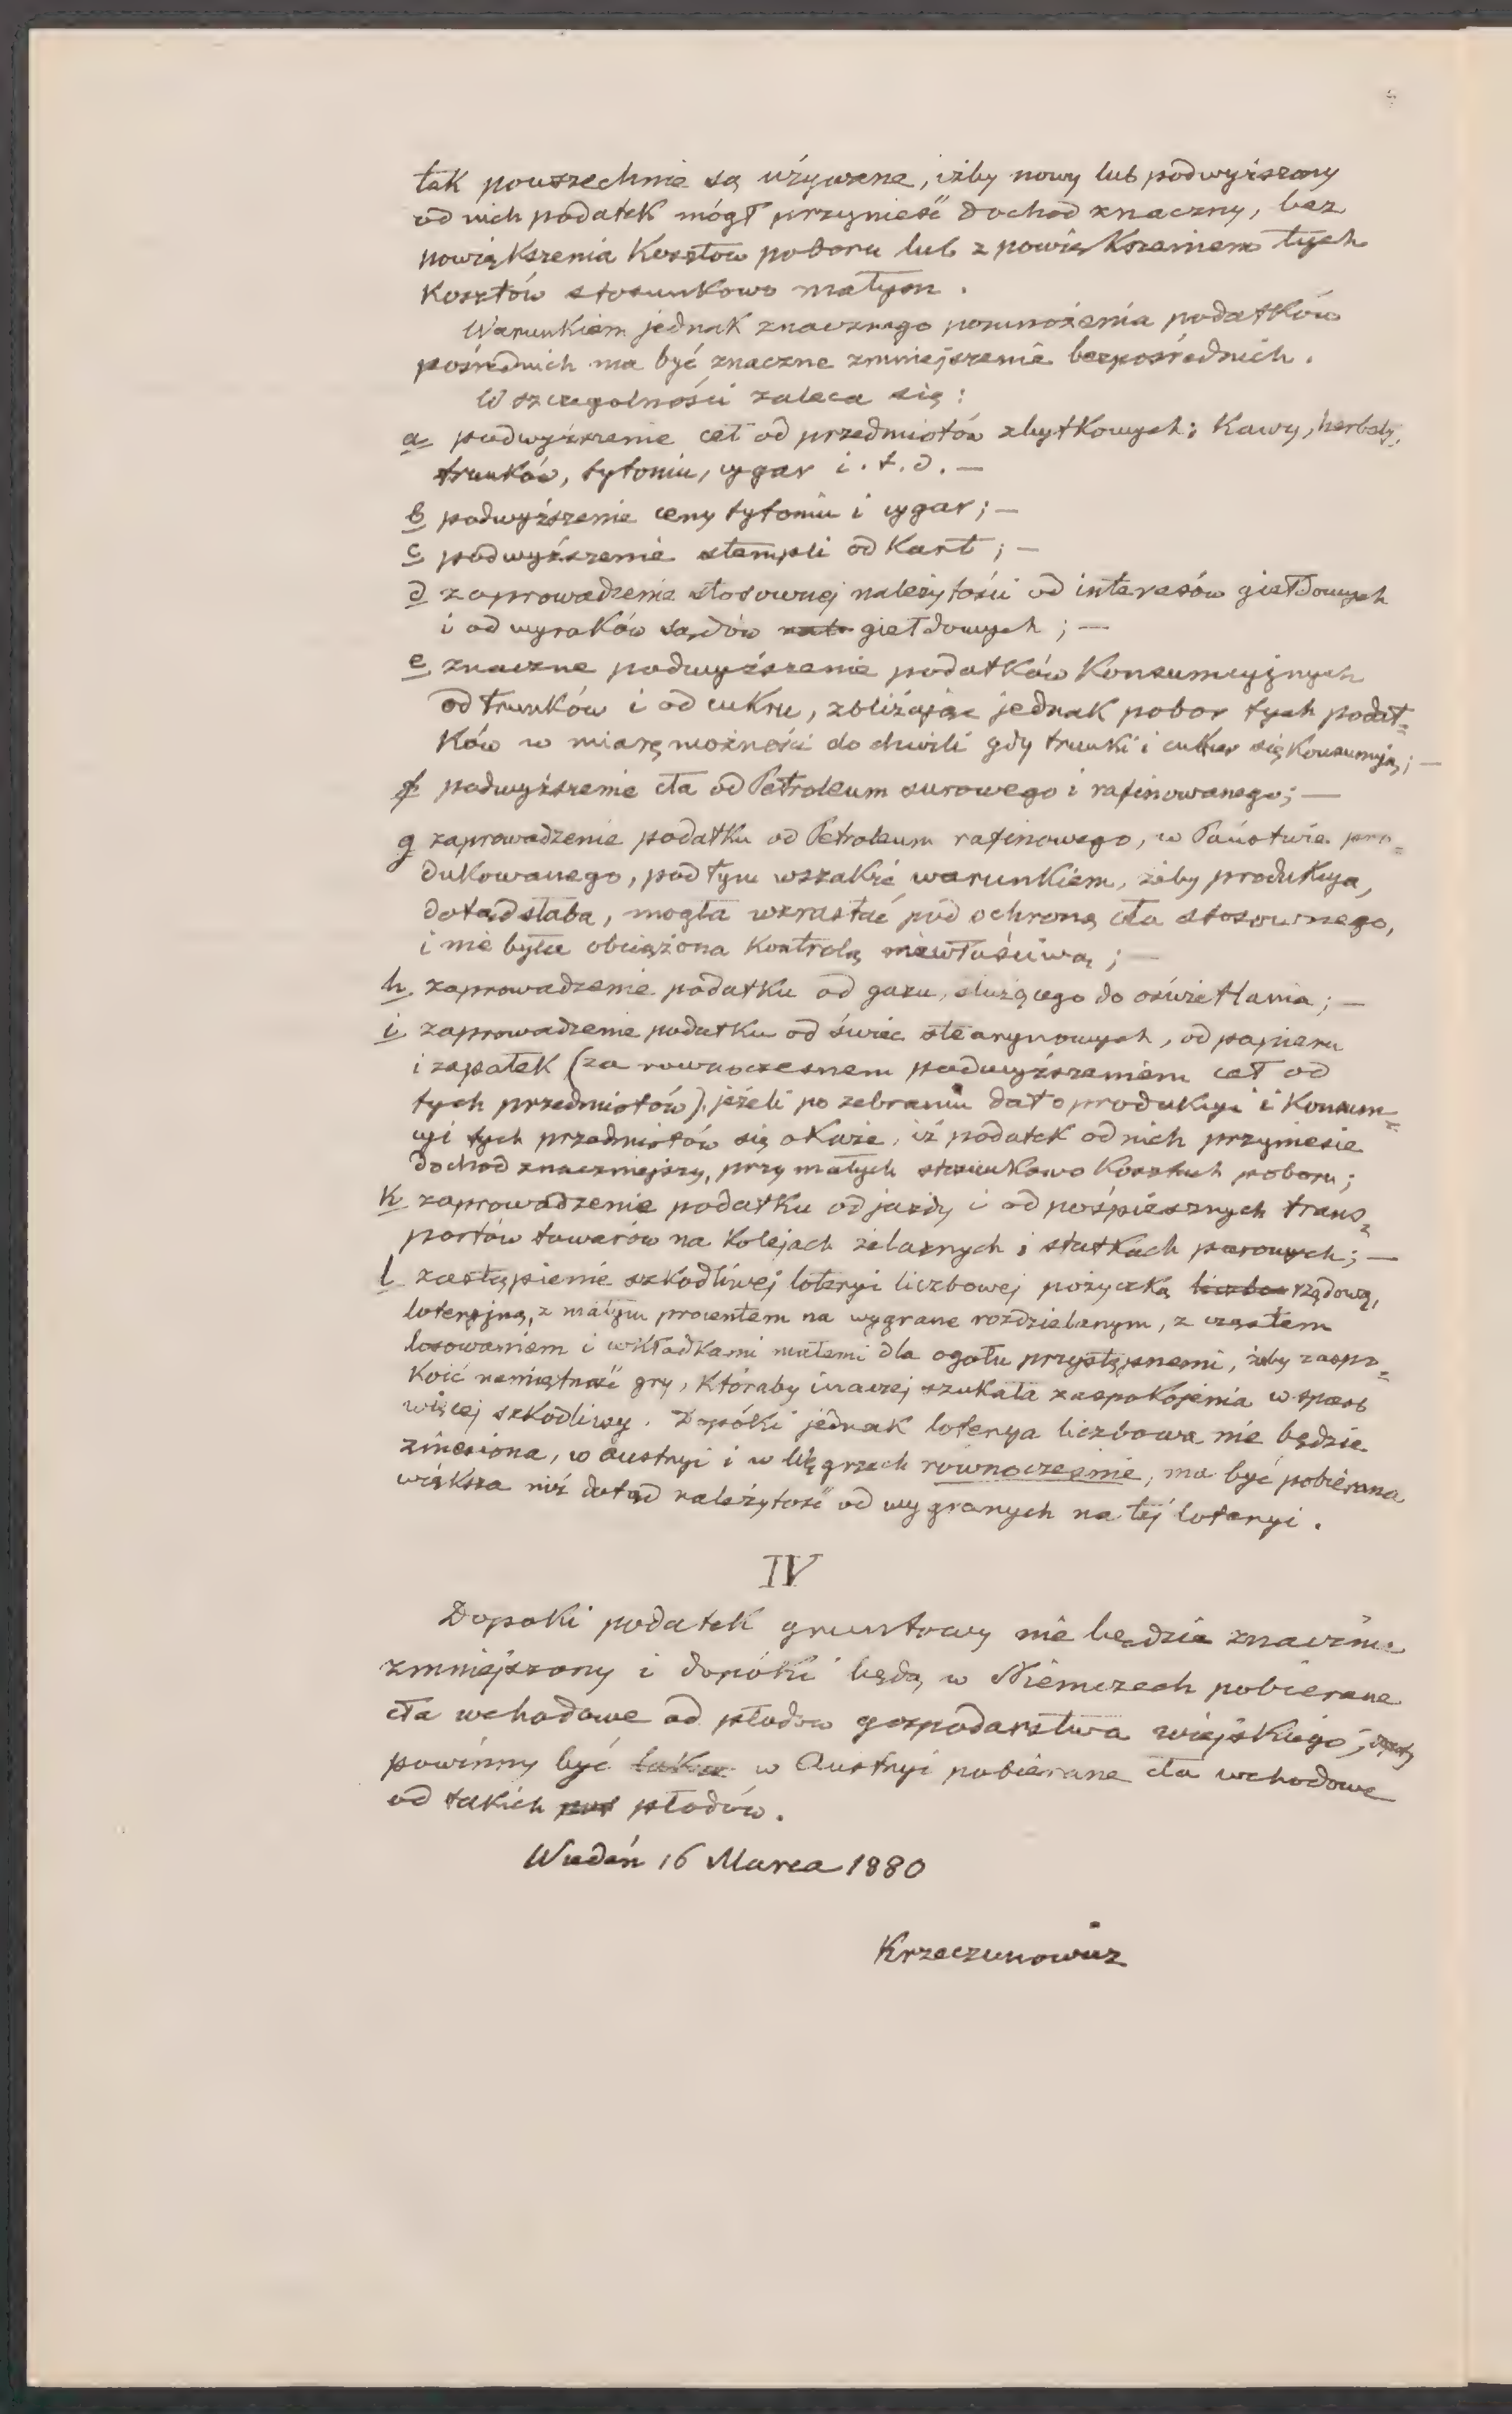 tak powszechnie są używane, iżby nowy lub podwyższony
od nich podatek mógł przynieść dochód znaczny, bez
powiększenia Kosztów poboru lub z powiększeniem tych
Kosztów stosunkowo małym.
Warunkiem jednak znacznego pomnożenia podatków
pośrednich ma być znaczne zmniejszenie bezpośrednich.
W szczegolności zaleca się:
a podwyższenie ceł od przedmiotów zbytkowych: Kawy, herbaty,
trunków, tytoniu, cygar i.t.d. —
b podwyższenie ceny tytoniu i cygar; —
c podwyższenie stempli od Kart; —
d zaprowadzenie stosownej należytości od interesów giełdowych
i od wyroków sądów giełdowych; —
e znaczne podwyższenie podatków Konsumcyjnych
od trunków i od cukru, zbliżając jednak pobor tych podat=
ków w miarę możności do chwili gdy trunki i cukier się Konsumują; —
f podwyższenie cła od Petroleum surowego i rafinowanego; —
g zaprowadzenie podatku od Petroleum rafinowego, w Państwie pro=
dukowanego, pod tym wszakże warunkiem, żeby produkcya,
dotąd słaba, mogła wzrastać pod ochroną cła stosownego,
i nie była obciążona Kontrolą niewłaściwą; —
h zaprowadzenie podatku od gazu, służącego do oświetlania; —
i zaprowadzenie podatku od świec stearynowych, od papieru
i zapałek (za rownoczesnem podwyższeniem ceł od
tych przedmiotów), jeżeli po zebraniu dat o produkcyi i Konsum=
cyi tych przedmiotów się okaże, iż podatek od nich przyniesie
dochod znaczniejszy, przy małych stosunkowo Kosztach poboru;
k zaprowadzenie podatku od jazdy i od pośpiesznych trans=
portów towarów na Kolejach żelaznych i statkach parowych; —
l zastąpienie szkodliwej loteryi liczbowej pożyczką rządową,
loteryjną, z małym procentem na wygrane rozdzielanym, z częstem
losowaniem i wkładkami małemi dla ogołu przystępnemi, żeby zaspo=
Koić namiętność gry, Któraby inaczej szukała zaspokojenia w sposob
więcej szkodliwy. Dopóki jednak loterya liczbowa nie będzie
zniesiona, w Austryi i w Węgrzech rownocześnie, ma być pobierana
większa niż dotąd należytość od wygranych na tej loteryi.
IV
Dopoki podatek gruntowy nie będzie znacznie
zmniejszony i dopóki będą w Niemczech pobierane
cła wchodowe od płodow gospodarstwa wiejskiego,
powinny być w Austryi pobierane cła wchodowe
od takich płodów.
Wiedeń 16 Marca 1880
Krzeczunowicz